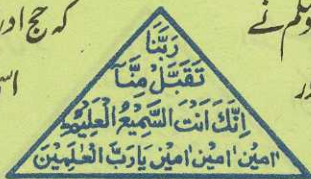 وسلم نے
کہ حج اور
رَبَّنَا
تَقَبَّلْ مِنَّآ
اِنَّكَ اَنْتَ السَّمِيْعُ الْعَلِيْمُ
اٰمين اٰمين اٰمين يَارَبَّ الْعٰلَمِيْنَ